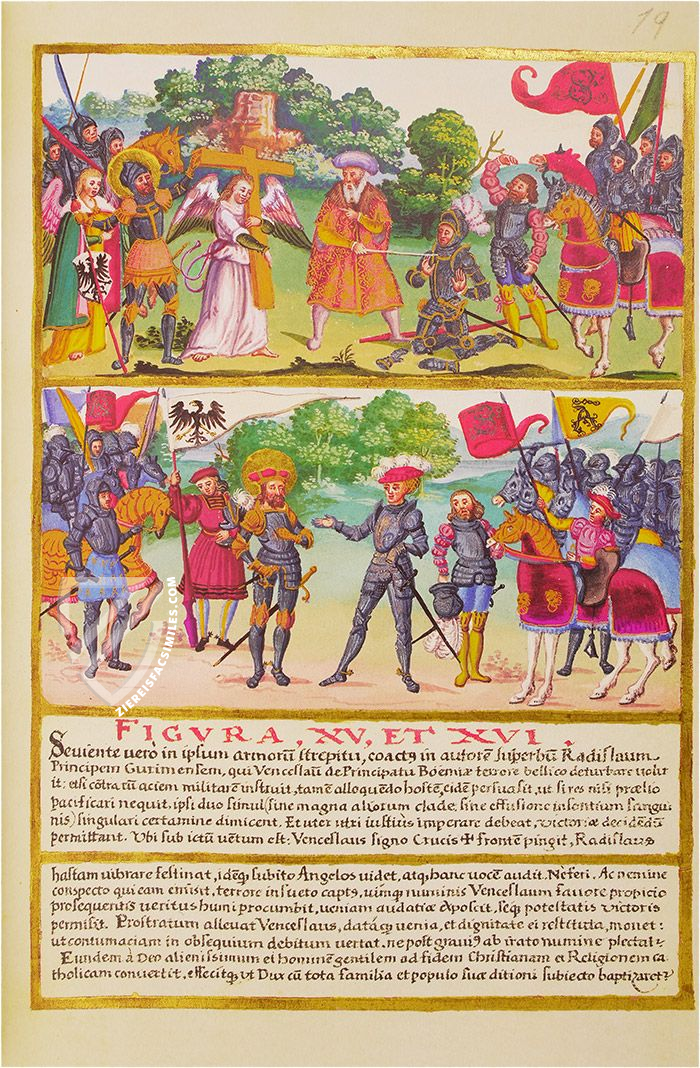 19
ZIEREISFACSIMILES.COM
FIGVRA, XV, ET XVI.
Seviente verò in ipsum armorū strepitu, coactꝰ in autorē superbū Radislaum
Principem Gurimensem, qui Venceslaū de Principatu Boemiæ terrore bellico deturbare voluit
it: etsi cōtra eū aciem militarē instruit, tamē alloquēdo hostē, eidē persuasit, ut si res nisi prælio
pacificari nequit, ipsi duo simul (sine magna aliorum clade, sine effusione insontium sangui
nis) singulari certamine dimicent. Et uter utri iustiꝰ imperare debeat, victoriæ decidēdū
permittant. Vbi sub ictū uētum est: Venceslaus signo Crucis ✝ frontē pingit, Radislaus
hastam vibrare festinat, idēqꝫ subito Angelos videt, atqꝫ hanc vocē audit. Nè feri. Ac nemine
conspecto qui eam emisit, terrore insueto captꝰ, uimqꝫ numinis Venceslaum favore propicio
prosequentis veritus humi procumbit, veniam audatiæ exposcit, seqꝫ potestati victoris
permisit. Prostratum allevat Venceslaus, datāqꝫ venia, et dignitate ei restituta, monet:
ut contumaciam in obsequium debitum vertat. ne post graviꝰ ab irato numine plectat
Eundem à Deo alienissimum et hominē gentilem ad fidem Christianam et Religionem ca
tholicam convertit, effecitqꝫ ut Dux cū tota familia et populo suæ ditioni subiecto baptizaret